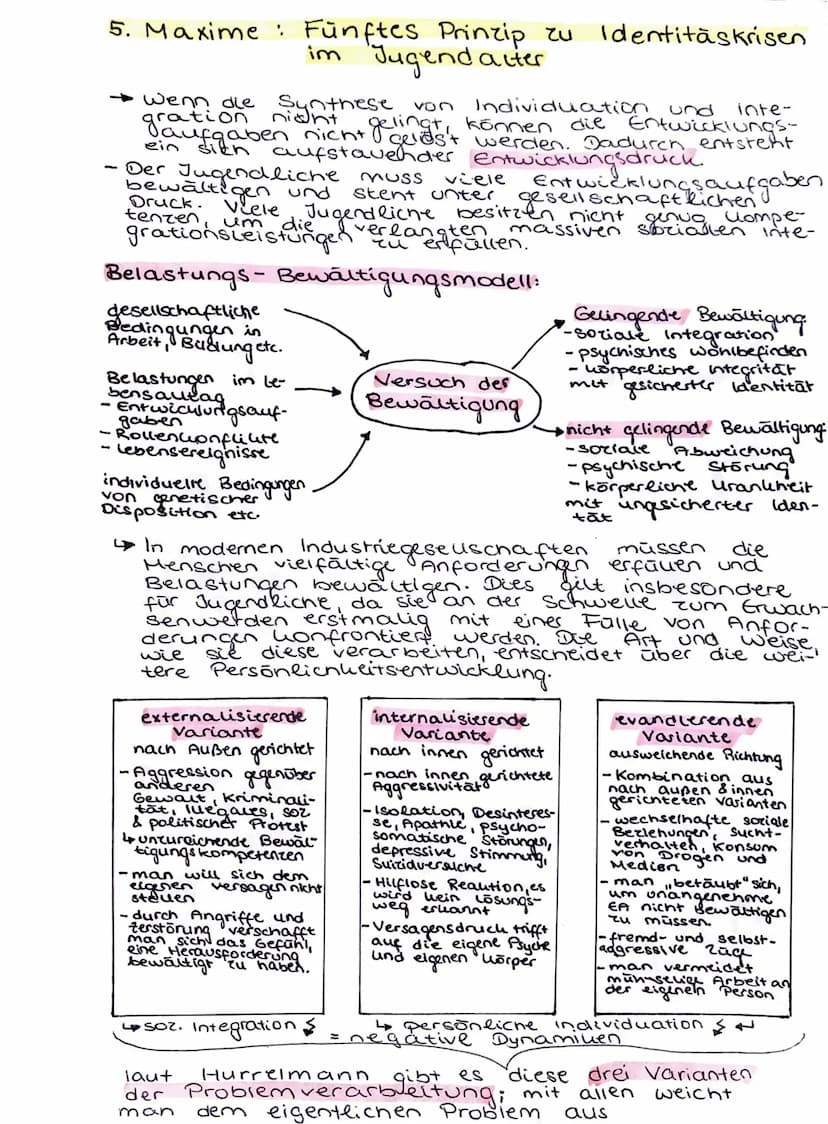 5. Maxime : Fünftes Prinzip zu Identitäskrisen
im Jugendalter
→ Wenn die Synthese von Individuation und Inte-
gration nicht gelingt, können die Entwicklungs-
aufgaben nicht gelöst werden. Dadurch entsteht
ein sich aufstauender Entwicklungsdruck.
- Der Jugendliche muss viele Entwicklungsaufgaben
bewältigen und steht unter gesellschaftlichen
Druck. Viele Jugendliche besitzen nicht genug Kompe-
tenzen, um die verlangten massiven sozialen Inte-
grationsleistungen zu erfüllen.
Belastungs - Bewältigungsmodell:
gesellschaftliche
Bedingungen in
Arbeit, Bildung etc.
Belastungen im Le-
bensalltag
- Entwicklungsauf-
gaben
- Rollenkonflikte
- Lebensereignisse
individuelle Bedingungen
von genetischer
Disposition etc.
Versuch der
Bewältigung
Gelingende Bewältigung:
- soziale Integration
- psychisches Wohlbefinden
- körperliche Integrität
mit gesicherter Identität
nicht gelingende Bewältigung:
- soziale Abweichung
- psychische Störung
- körperliche Krankheit
mit ungsicherter Iden-
tät
↳ In modernen Industriegesellschaften müssen die
Menschen vielfältige Anforderungen erfüllen und
Belastungen bewältigen. Dies gilt insbesondere
für Jugendliche, da sie an der Schwelle zum Erwach-
senwerden erstmalig mit einer Fülle von Anfor-
derungen konfrontiert werden. Die Art und Weise,
wie sie diese verarbeiten, entscheidet über die wei-
tere Persönlichkeitsentwicklung.
externalisierende
Variante
nach Außen gerichtet
- Aggression gegenüber
anderen
Gewalt, Kriminali-
tät, Illegales, soz
& politischer Protest
↳ unzureichende Bewäl-
tigungskompetenzen
- man will sich dem
eigenen Versagen nicht
stellen
- durch Angriffe und
Zerstörung verschafft
man sich das Gefühl,
eine Herausforderung
bewältigt zu haben.
internalisierende
Variante
nach innen gerichtet
- nach innen gerichtete
Aggressivität
- Isolation, Desinteres-
se, Apathie, psycho-
somatische Störungen,
depressive Stimmung,
Suizidversuche
- Hilflose Reaktion, es
wird kein Lösungs-
weg erkannt
- Versagensdruck trifft
auf die eigene Psyche
und eigenen Körper
evadierende
Variante
ausweichende Richtung
- Kombination aus
nach außen & innen
gerichteten Varianten
- wechselhafte soziale
Beziehungen, Sucht-
verhalten, Konsum
von Drogen und
Medien
- man „betäubt" sich,
um unangenehme
EA nicht bewältigen
zu müssen.
- fremd- und selbst-
aggressive Züge
- man vermeidet
mühselige Arbeit an
der eigenen Person
↳ soz. Integration ↯
↳ persönliche Individuation ↯ ↵
= negative Dynamiken
laut Hurrelmann gibt es diese drei Varianten
der Problemverarbeitung; mit allen weicht
man dem eigentlichen Problem aus